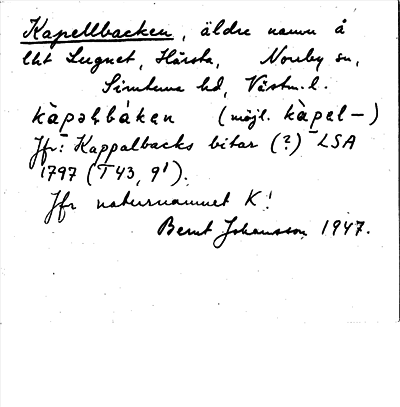 Kapellbacken, äldre namn å
lht Lugnet, Hårsta, Nomby sn,
Simtuna hd, Västm. l.
kàpəḷbákən (möjl. kàpel–)
Jfr: Kappalbacks bitar (?) LSA
1797 (T43, 9¹).
Jfr naturnamnet K!
Bernt Johansson 1947.